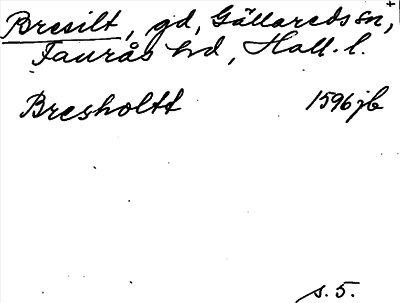 Bresilt, gd, Gällareds sn,
Faurås hd, Hall. l.
Bresholtt 1596 jb
s. 5.